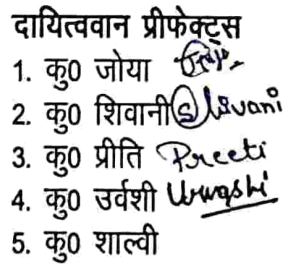 दायित्ववान प्रीफेक्ट्स
1. कु0 जोया
2. कु0 शिवानी Shivani
3. कु0 प्रीति Preeti
4. कु0 उर्वशी Urwashi
5. कु0 शाल्वी